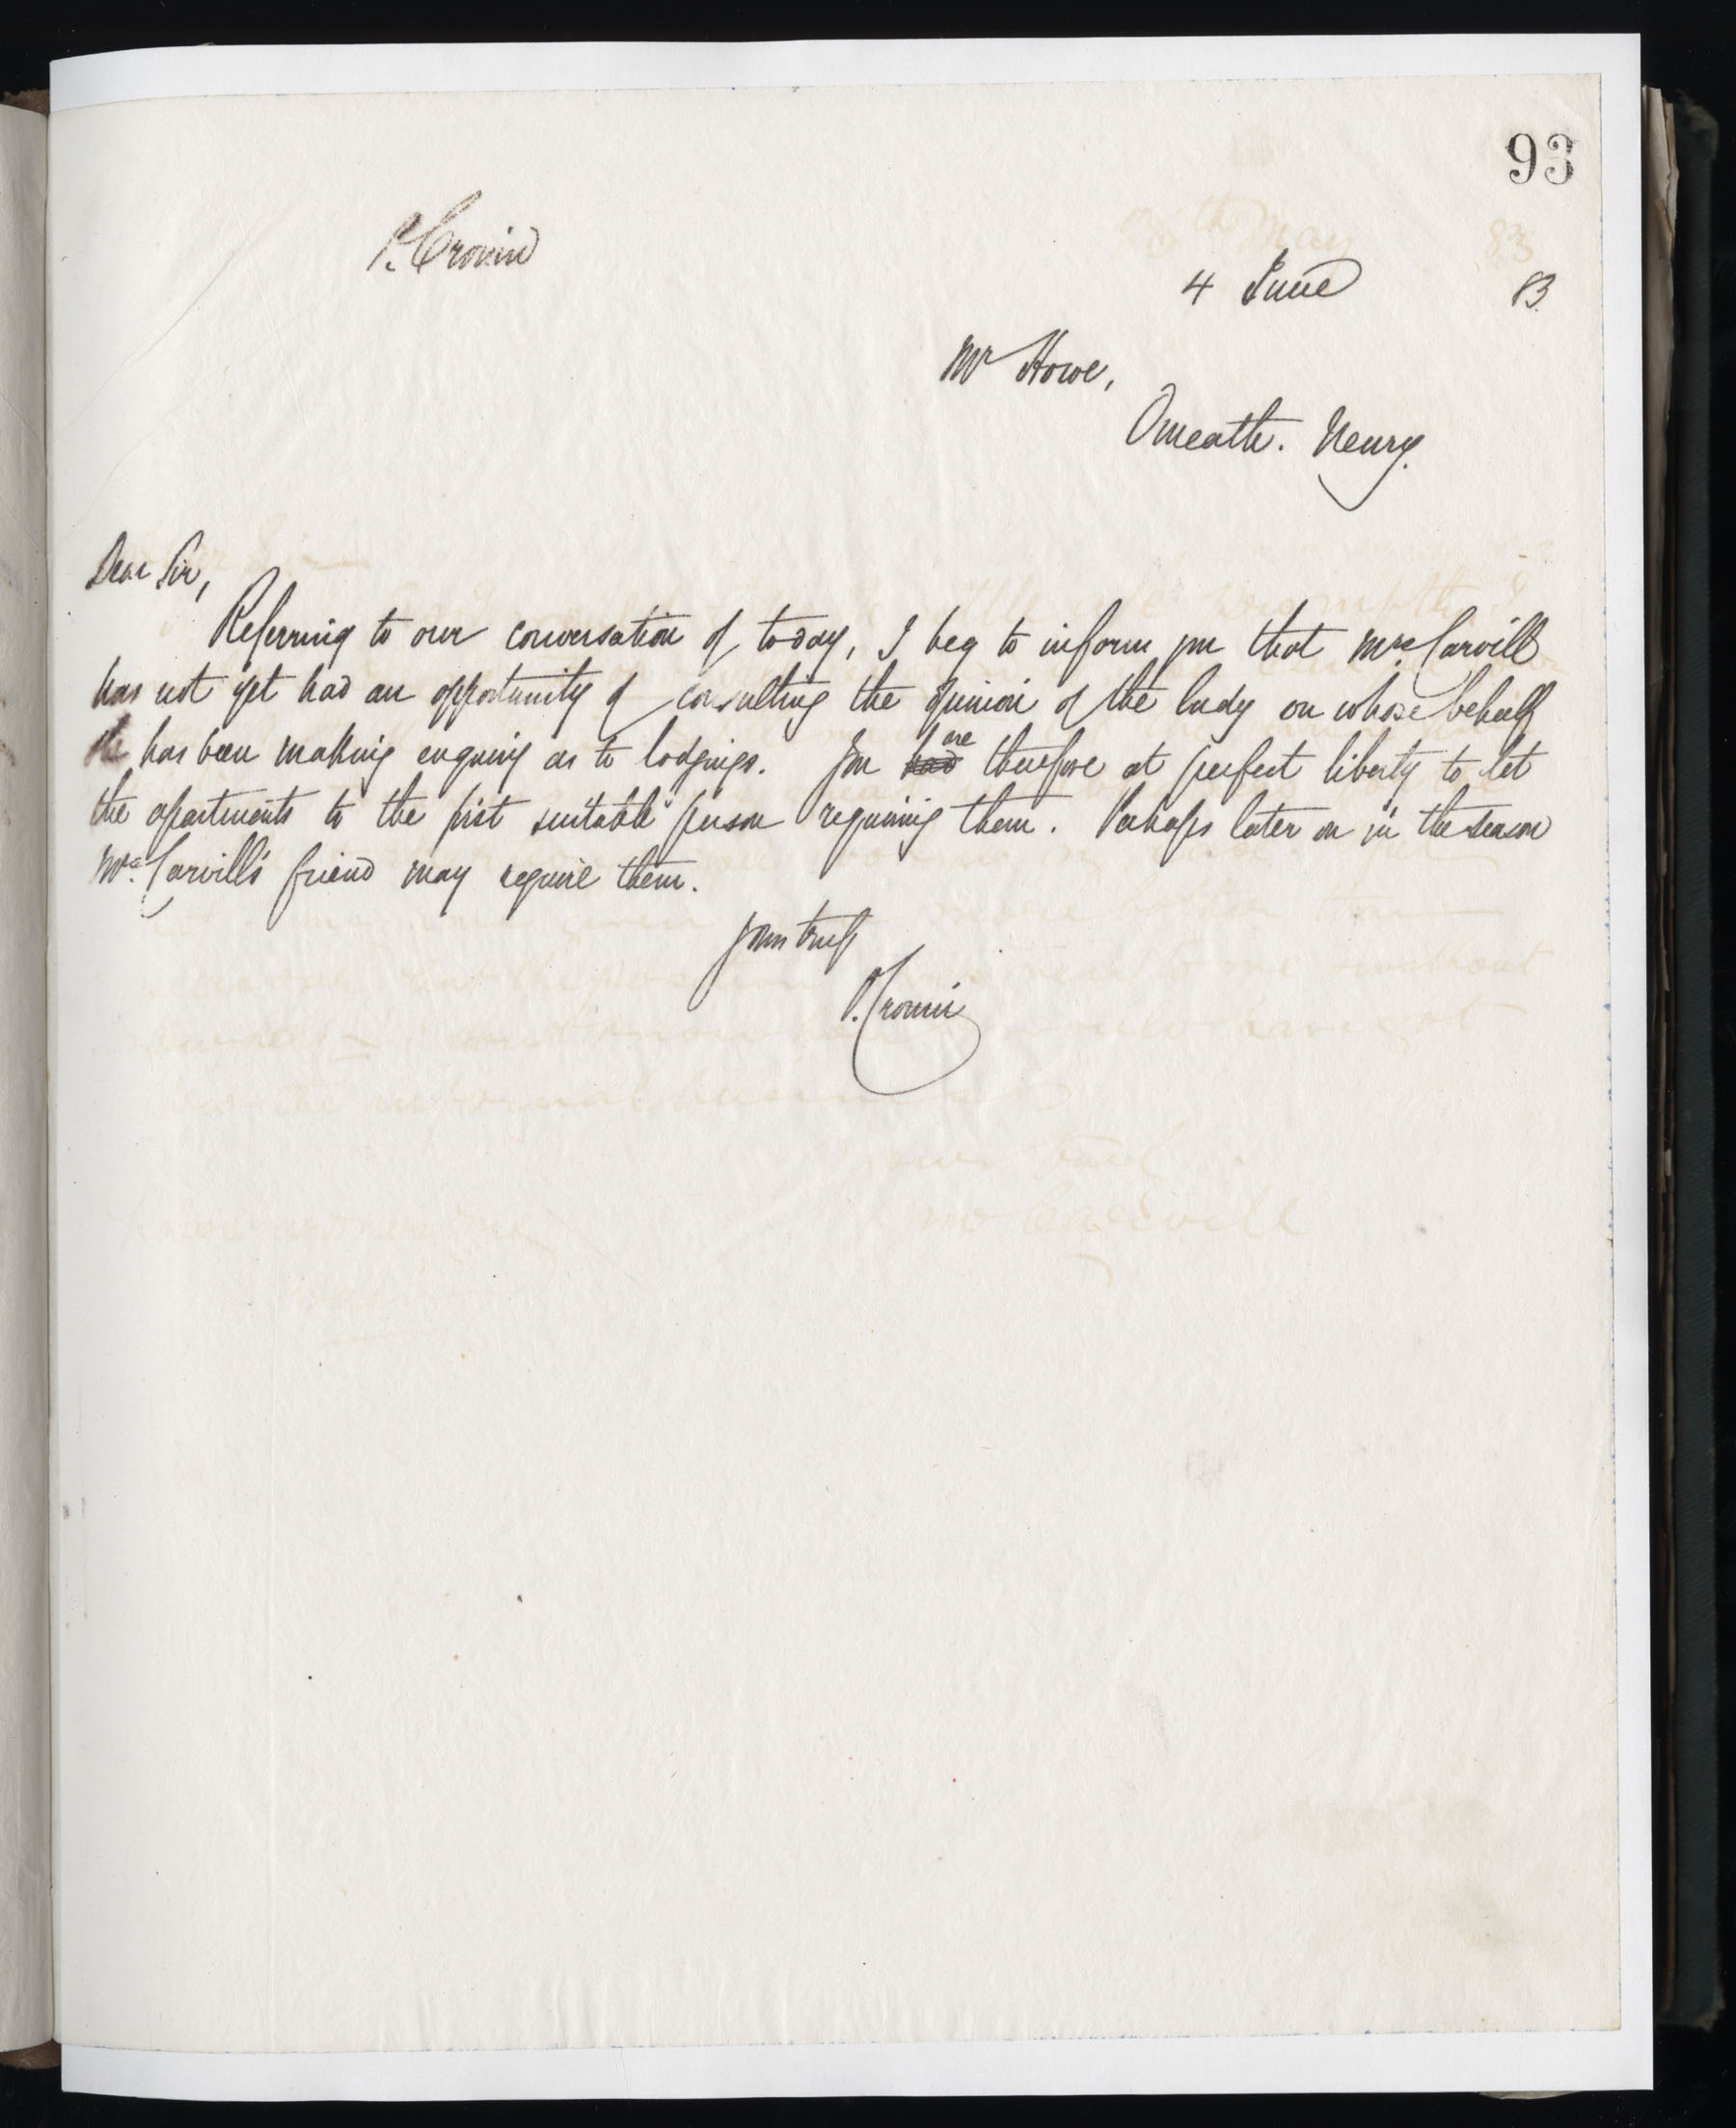 93
P. Cronin
4 June 83.
Mr Howe,
Omeath. Newry.
Dear Sir,
Referring to our conversation of today, I beg to inform you that Mrs. Carvill
has not yet had an opportunity of consulting the opinion of the lady on whose behalf
she has been making enquiry as to lodgings. You had are therefore at perfect liberty to let
the apartments to the first suitable person requiring them. Perhaps later on in the season
Mrs. Carvill's friend may require them.
Yours truly
P. Cronin